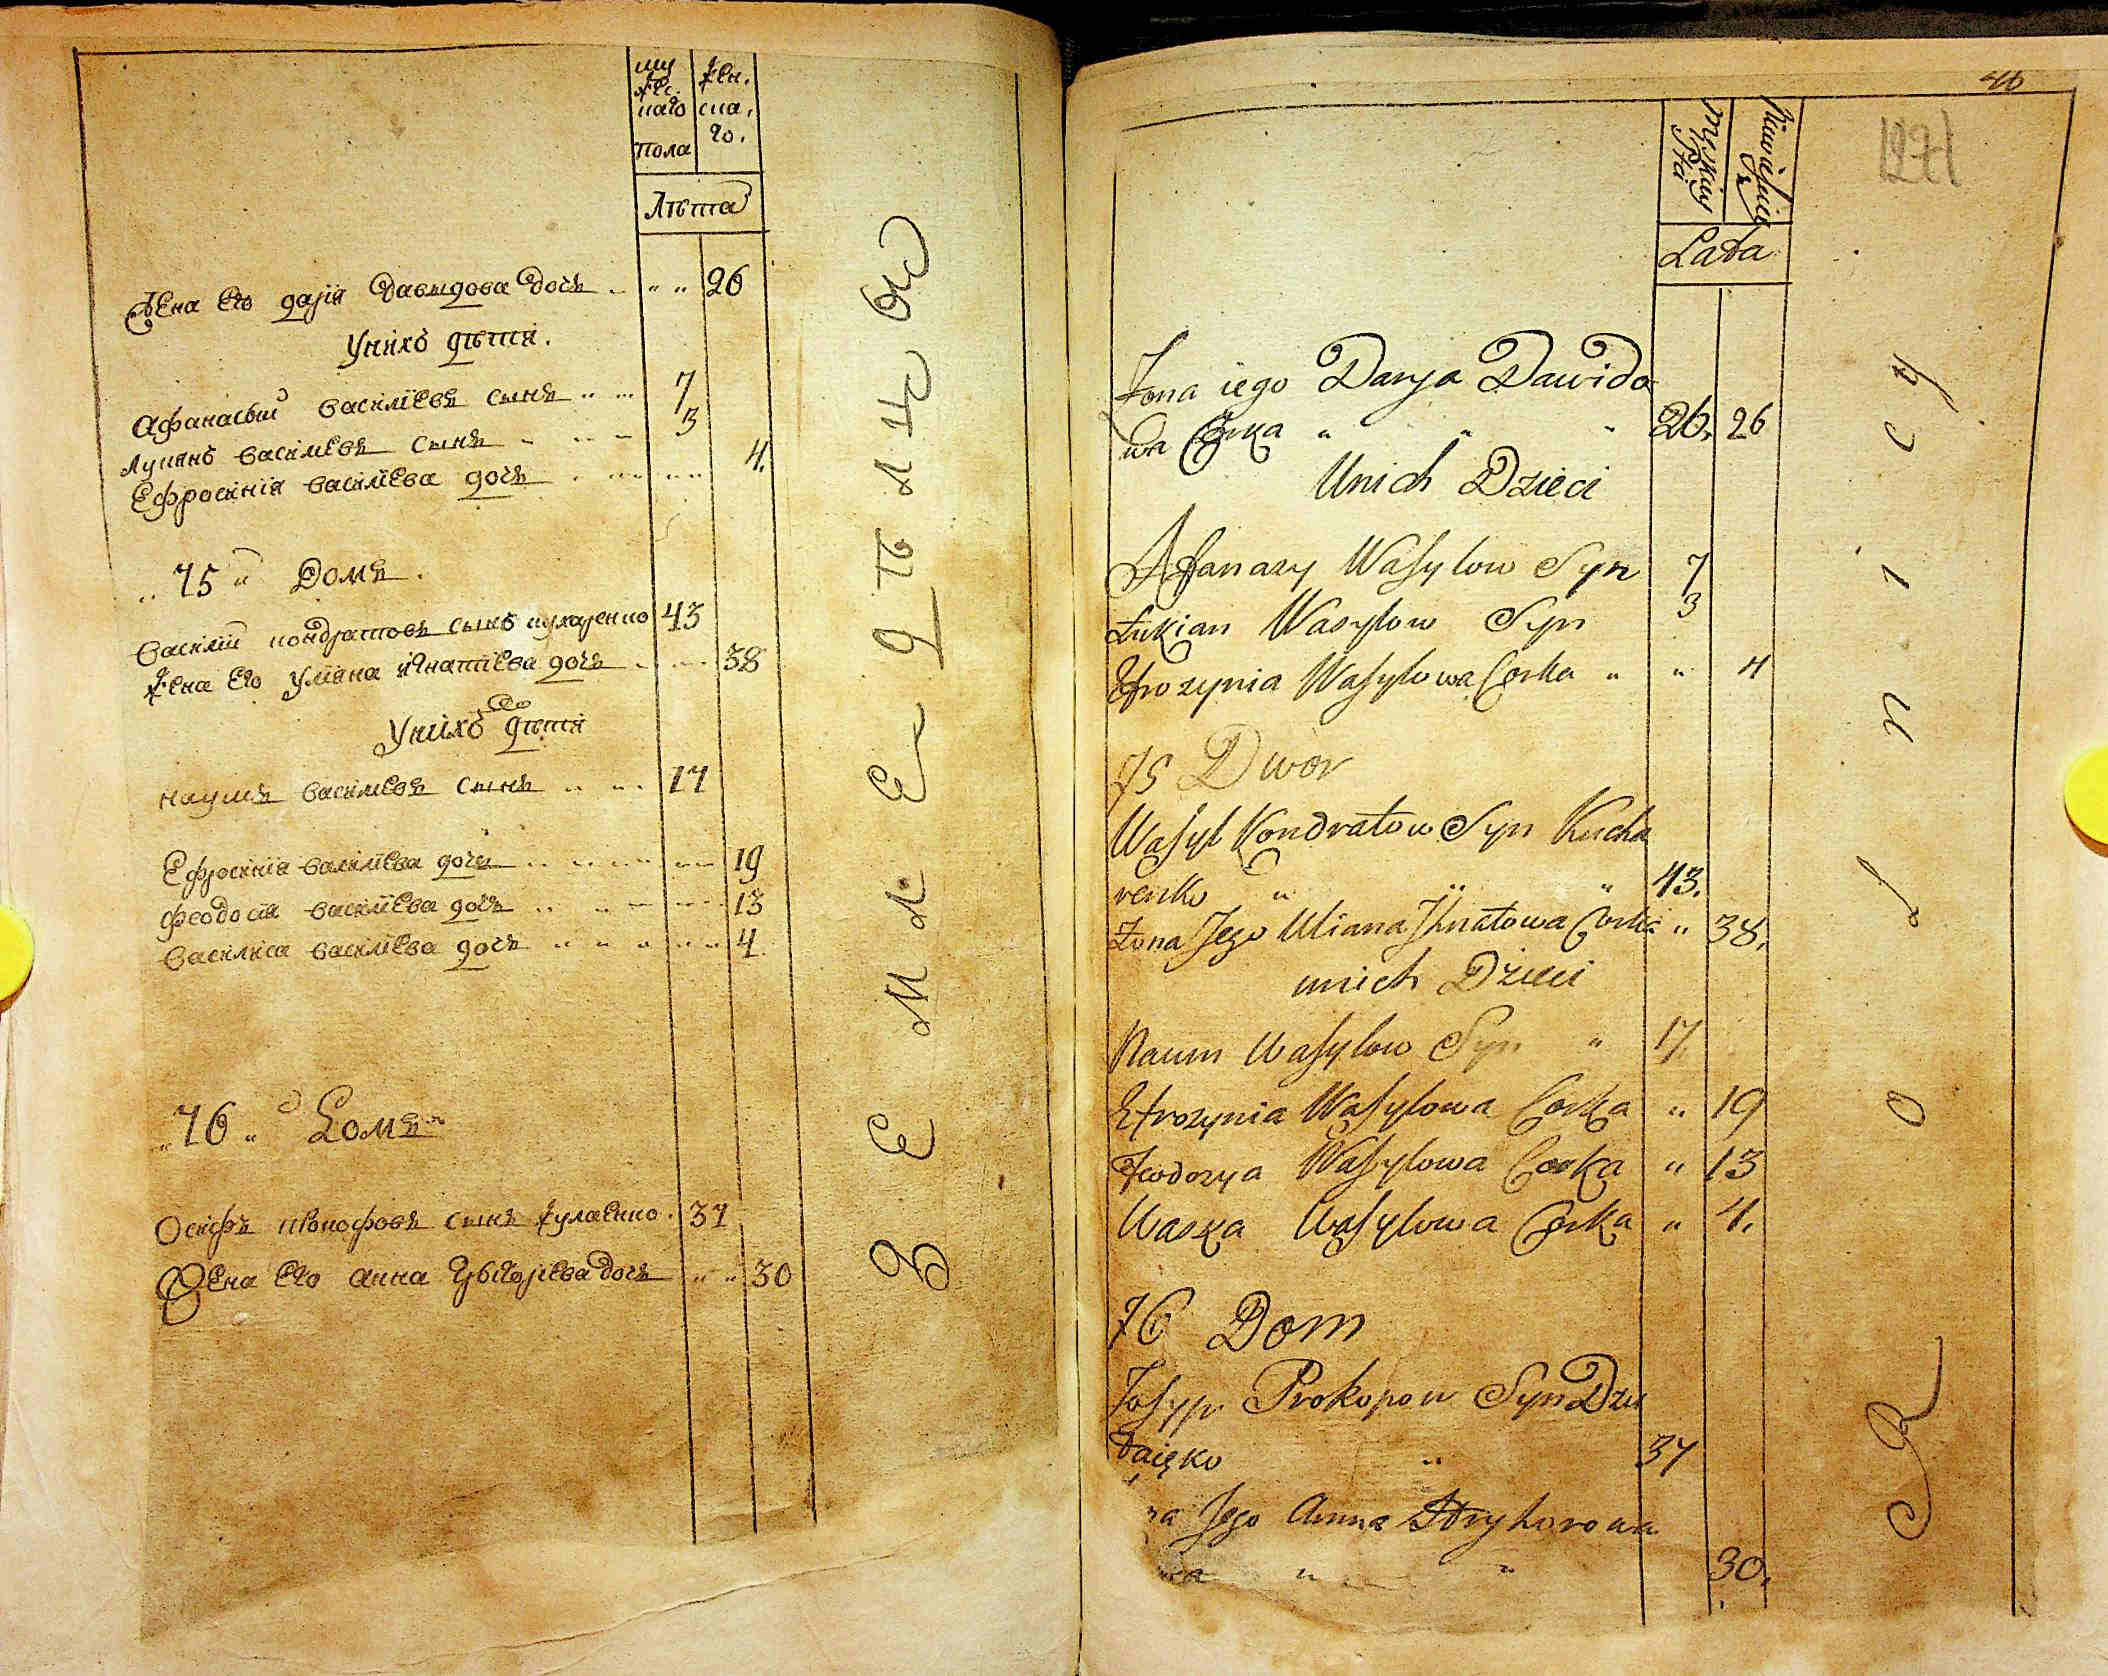 му
жес.
каго
пола
жен.
ска,
го.
Лѣта
Жена его дарія Давыдова дочь 26
Унихъ дѣти.
Афанасьи василіевъ сынъ 7
Лукянъ василіевъ сынъ 3
Ефросинія василіева дочь 4.
75 Домъ.
Василіи кондратовъ сынъ кухаренко 43
Жена его уліяна игнатіева дочь 38
Унихъ дѣти
наумъ василіевъ сынъ 17
Ефросинія василіева дочь 19
Феодосія василіева дочь 13
Василиса василіева дочь 4
76 Домъ
Осифъ прокофовъ сынъ 37
Жена его анна григорiева дочь 30
З Е М Л Е Д Ѣ Л Ц Ы
46
127
Męskiey
Płci
Lata
Żona iego Darya Dawido
wa Corka 26. 26
Unich Dzieci
Afanazy Wasylow Syn 7
Łukian Wasylow Syn 3
Efrozynia Wasylowa Corka 4
75 Dwor
Wasyl Kondratow Syn Kucha
renko 43.
Żona Jego Uliana Ihnatowa Corka 38.
unich Dzieci
Naum Wasylow Syn 17
Efrozynia Wasylowa Corka 19
Feodozya Wasylowa Corka 13
Waska Wasylowa Corka 4.
76 Dom
Josyp Prokopow Syn
37
na Jego Anna Hryhorowa
30.
R o l n i c y